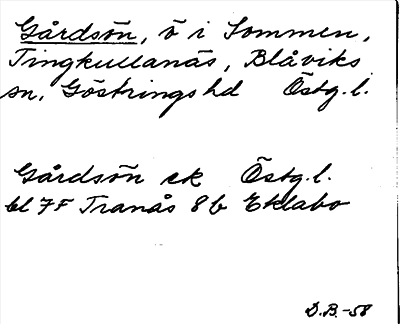 Gårdsön, ö i Sommen,
Tingkullanäs, Blåviks
sn, Göstrings hd Östg. l.
Gårdsön ek Östg. l.
bl 7F Tranås 8b Eklabo
D.B.-58